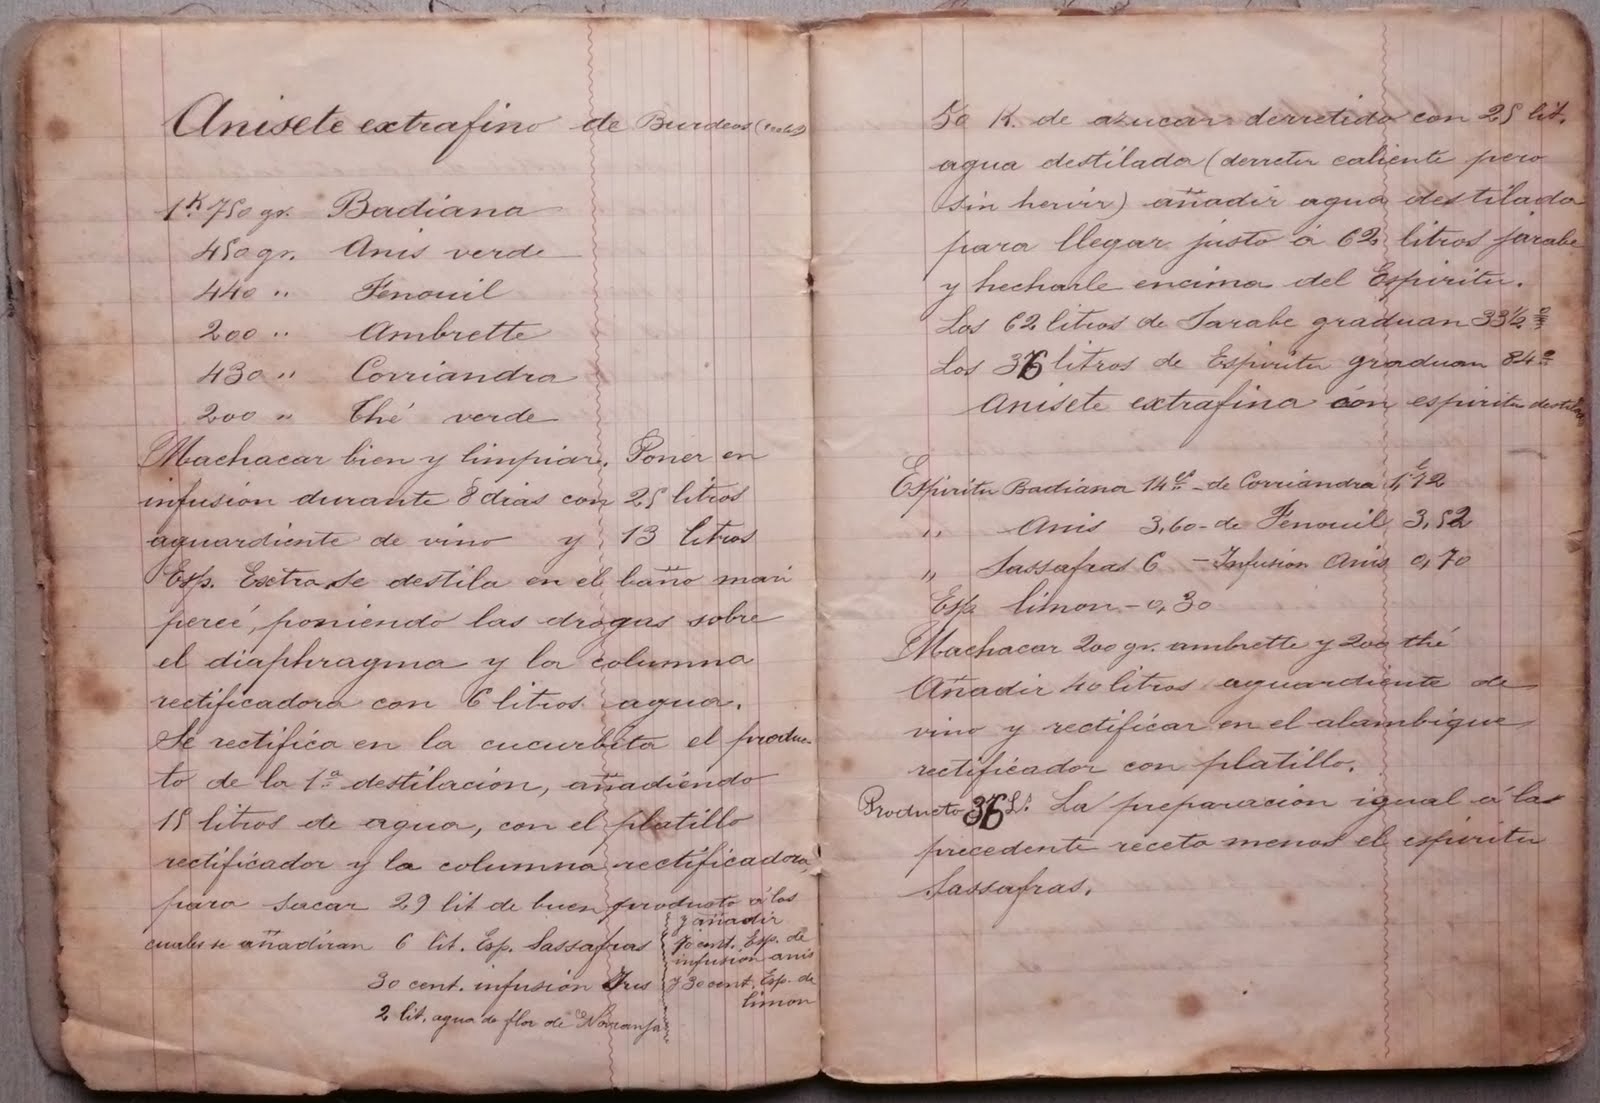 Anisete extrafino de Burdeos
1K 750 gr. Badiana
450 gr. Anis verde
440 " Fenouil
200 " Ambrette
430 " Corriandra
200 " Thé verde
Machacar bien y limpiar. Poner en
infusión durante 8 dias con 25 litros
aguardiente de vino y 13 litros
Esp. Extra. Se destila en el baño mari
percé, poniendo las drogas sobre
el diaphragma y la columna
rectificadora con 6 litros agua.
Se rectifica en la cucurbita el produc-
to de la 1ª destilación, añadiendo
15 litros de agua, con el platillo
rectificador y la columna rectificadora,
para sacar 29 lit de buen producto á los
cuales se añadiran 6 lit. Esp. Sassafras
30 cent. infusión Iris
2 lit. agua de flor de Naranja
y añadir
70 cent. Esp. de
infusión anis
y 30 cent. Esp. de
limon
50 K. de azucar derretido con 25 lit.
agua destilada (derretir caliente pero
sin hervir) añadir agua destilada
para llegar justo á 62 litros jarabe
y hecharle encima del Espiritu.
Los 62 litros de Jarabe graduan 33½
Los 36 litros de Espiritu graduan 84º
Anisete extrafino con espiritu
Espiritu Badiana 14 - de Corriandra 1,72
" Anis 3,60 - de Fenouil 3,52
" Sassafras 6 - Infusión Anis 0,70
Esp limon - 0,30
Machacar 200 gr. ambrette y 200 thé
Añadir 40 litros aguardiente de
vino y rectificar en el alambique
rectificador con platillo.
Producto 36 L. La preparación igual á la
precedente receta menos el espiritu
Sassafras.